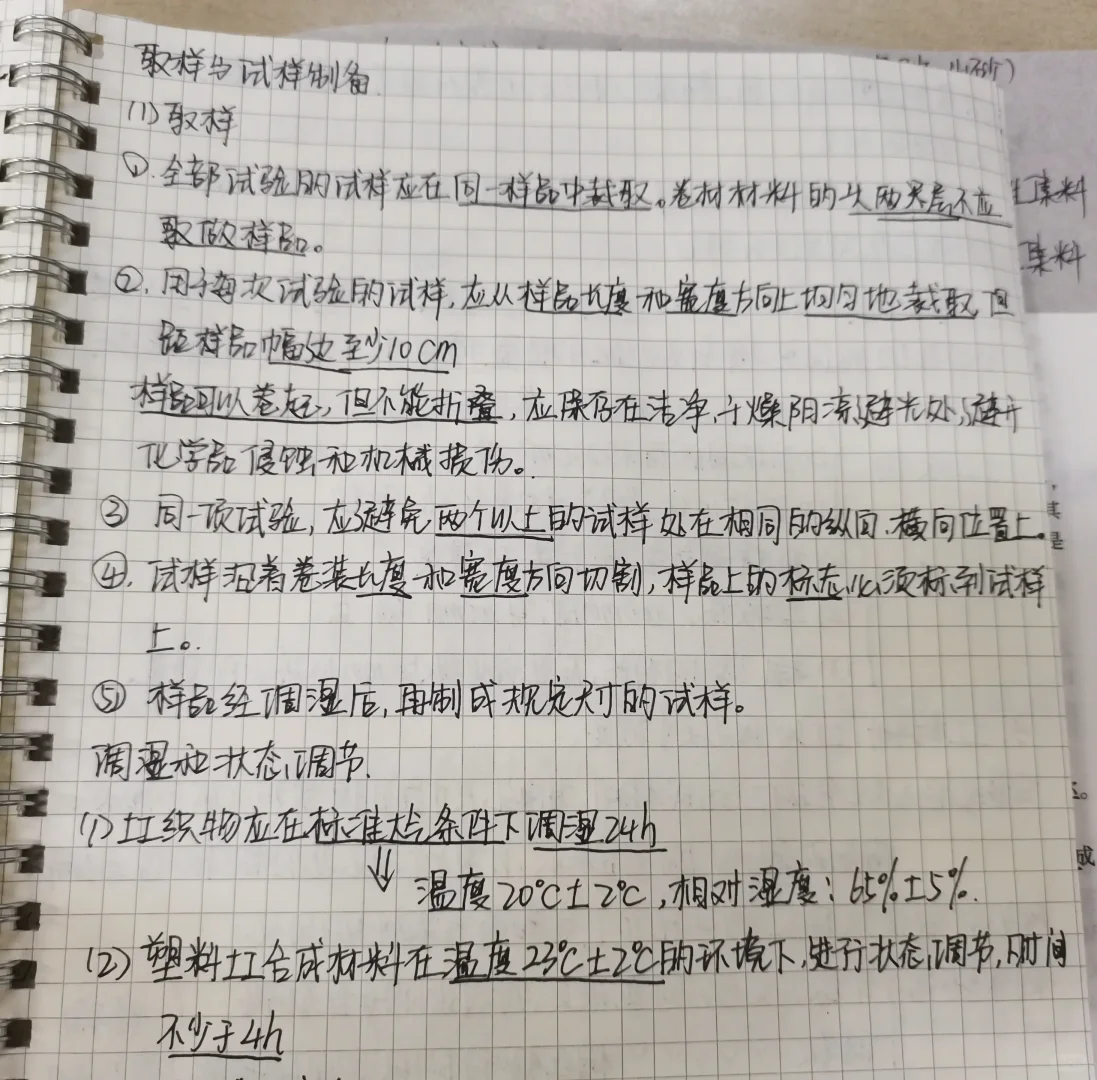 取样与试样制备
(1)取样
①.全部试验的试样应在同一样品中裁取。卷材材料的头两层不应
取做样品。
②.用于每次试验的试样,应从样品长度和宽度方向上均匀地裁取,但
距样品幅边至少10cm
样品可以卷起,但不能折叠,应保存在洁净、干燥阴凉避光处,避开
化学品侵蚀和机械损伤。
③ 同一项试验,应避免两个以上的试样处在相同的纵向、横向位置上。
④.试样沿着卷装长度和宽度方向切割,样品上的标态必须标到试样
上。
⑤ 样品经调湿后,再制成规定尺寸的试样。
调湿和状态调节.
(1)土工织物应在标准大气条件下调湿24h
⇓ 温度20℃±2℃,相对湿度:65%±5%.
(2)塑料土工合成材料在温度23℃±2℃的环境下,进行状态调节,时间
不少于4h
集料
集料
其
是
成